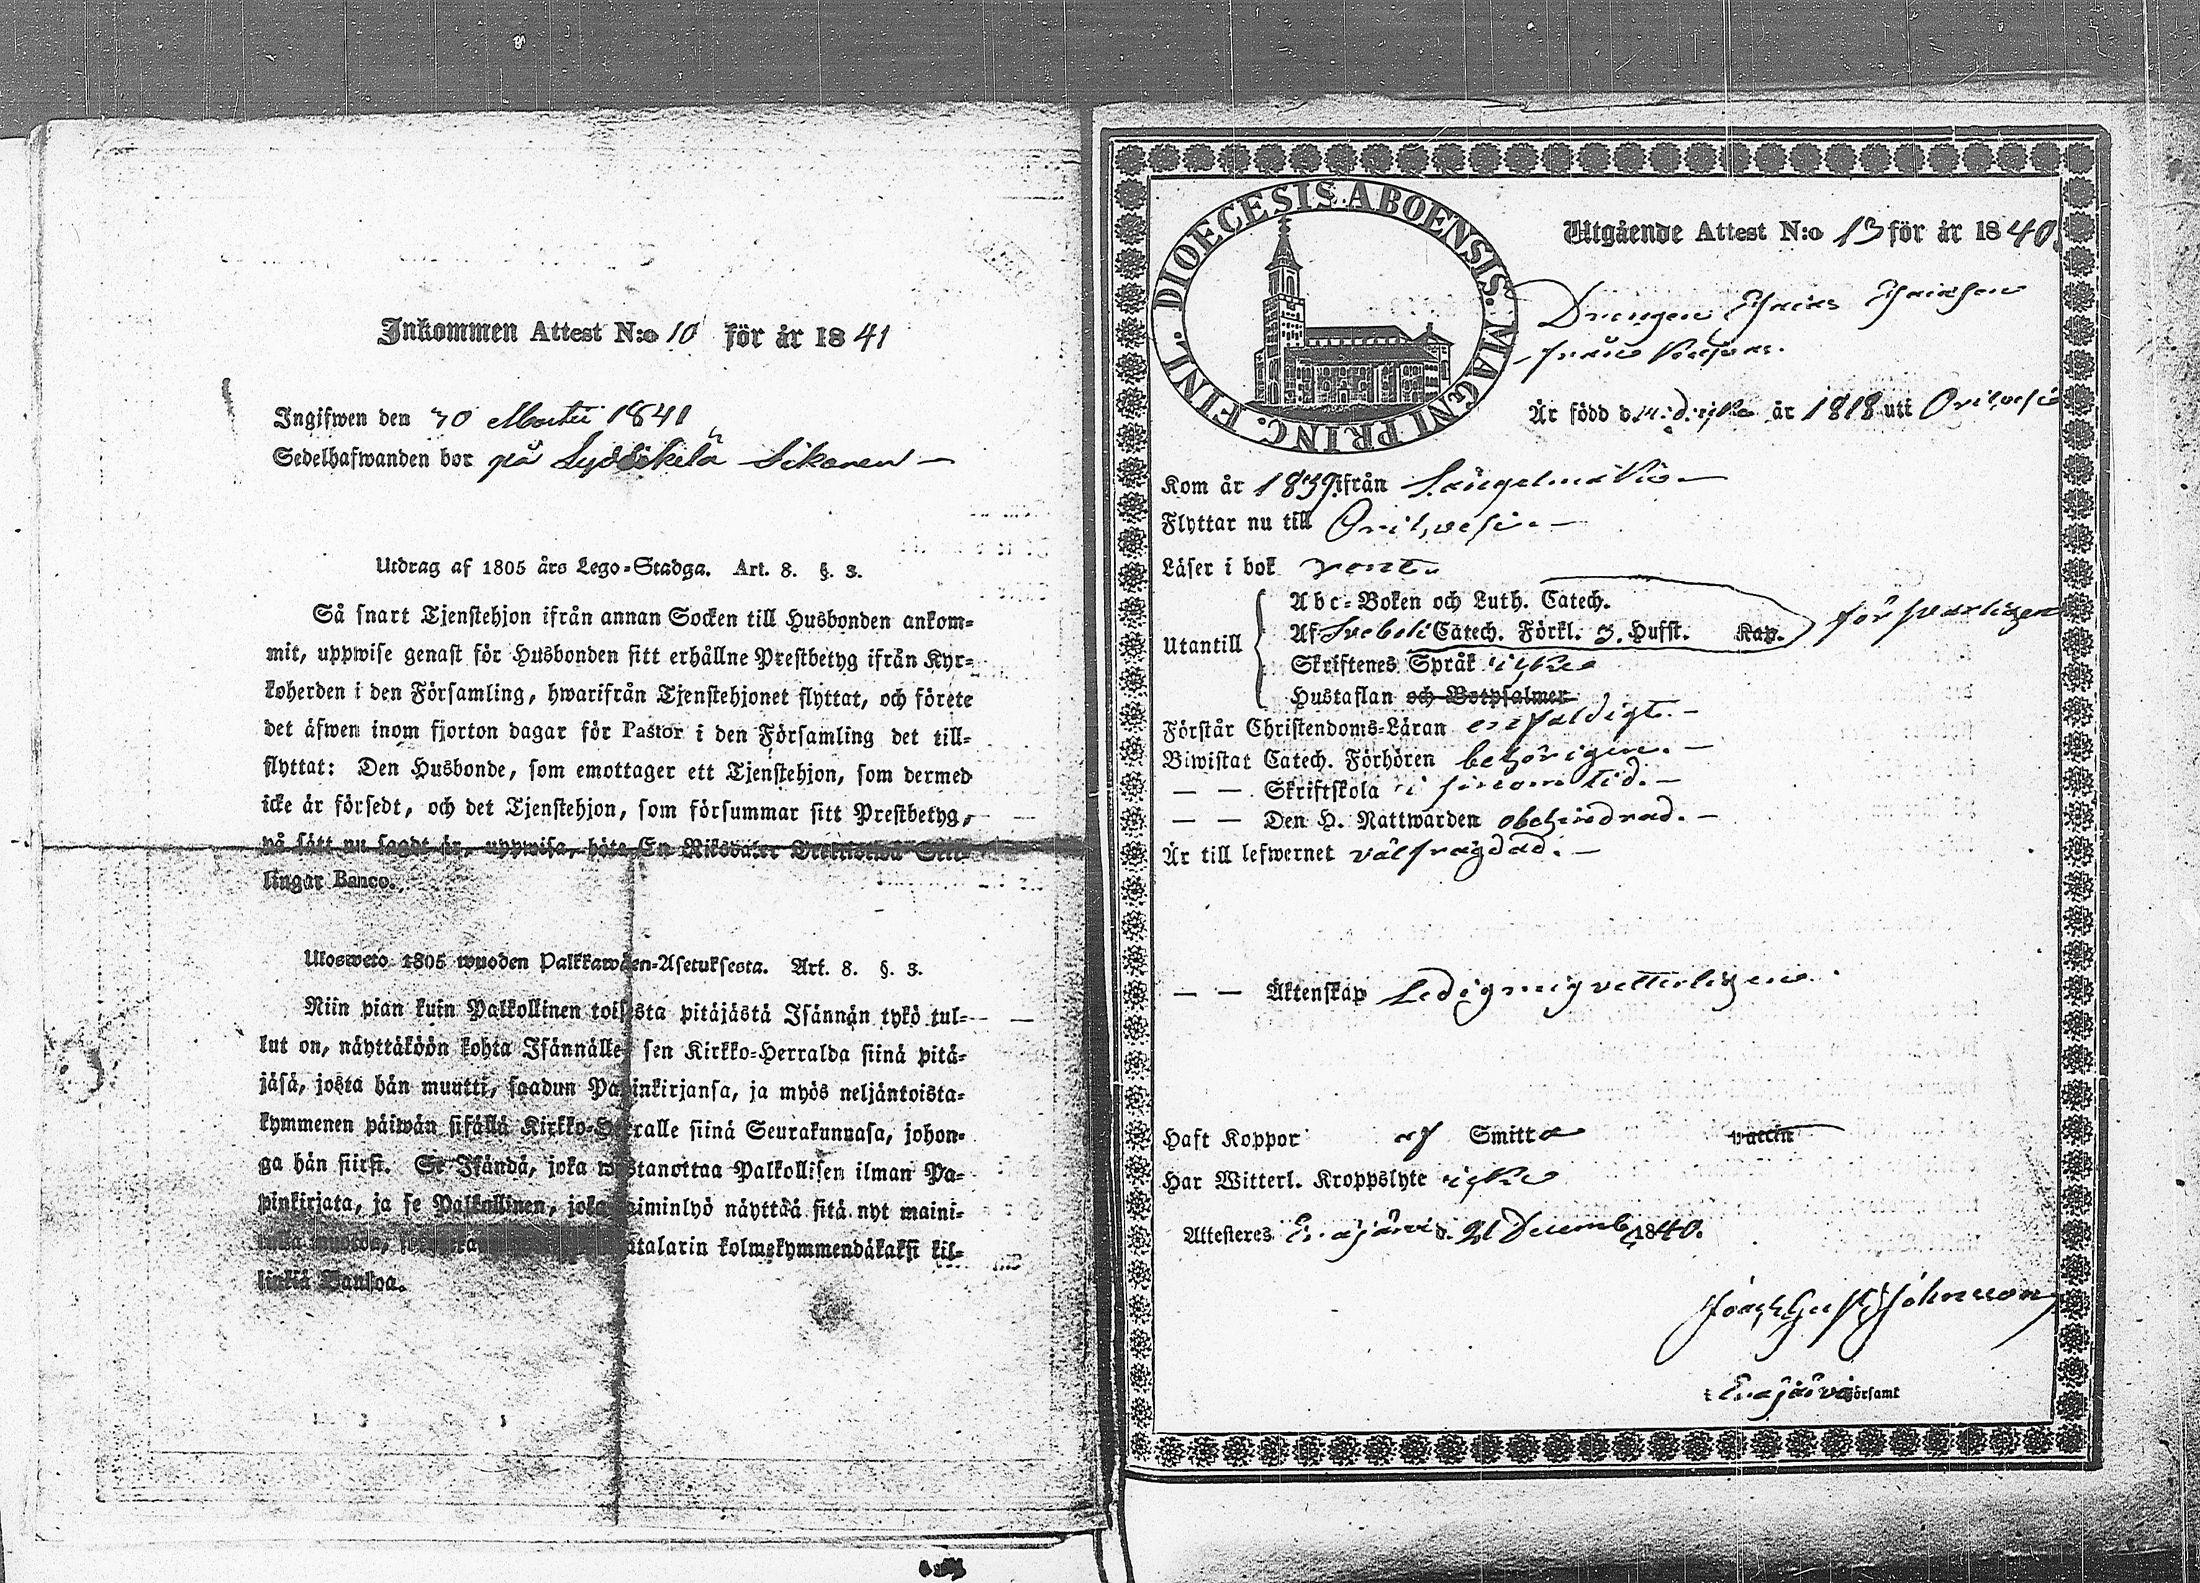 Inkommen Attest N:o 10 för år 1841
Ingifwen den 30 Martii 1841
Sedelhafwanden bor på Sikanen
Utdrag af 1805 års Lego-Stadga. Art. 8. §. 3.
Så snart Tjenstehjon ifrån annan Socken till Husbonden ankom-
mit, uppwise genast för Husbonden sitt erhållne Prestbetyg ifrån Kyr-
koherden i den Församling, hwarifrån Tjenstehjonet flyttat, och förete
det äfwen inom fjorton dagar för Pastor i den Församling det till-
flyttat: Den Husbonde, som emottager ett Tjenstehjon, som dermed
icke är försedt, och det Tjenstehjon, som försummar sitt Prestbetyg,
på sätt nu sagdt är, uppwisa, böte En Riksdaler Trettiotwå Skil-
lingar Banco.
Ulosweto 1805 wuoden Palkkawäen-Asetuksesta. Art. 8. §. 3.
Niin pian kuin Palkollinen toisesta pitäjästä Isännän tykö tul-
lut on, näyttäköön kohta Isännälle sen Kirkko-Herralda siinä pitä-
jäsä, josta hän muutti, saadun Papinkirjansa, ja myös neljäntoista-
kymmenen päiwän sisällä Kirkko-Herralle siinä Seurakunnasa, johon-
ga hän siirsi. Se Isändä, joka wastanottaa Palkollisen ilman Pa-
pinkirjata, ja se Palkollinen, joka laiminlyö näyttää sitä nyt maini-
tulla muotoa, kolmekymmendäkaksi kil-
linkiä Bankoa.
DIOECESIS ABOENSIS. MAGNI PRINC. FINL.
Utgående Attest N:o 13 för år 1840
Drengen
från
Är född d. år 1818 uti Orihvesi
Kom år 1839 ifrån Längelmäki
Flyttar nu till Orihvesi
Läser i bok rent
Utantill
Abc-Boken och Luth. Catech.
Af Svebeli Catech. Förkl. 3. Hufst. Kap. försvarligen
Skriftenes Språk icke
Hustaflan och Botpsalmer
Förstår Christendoms-Läran enfaldigt.
Biwistat Catech. Förhören behörigen.
— — Skriftskola i sinom tid.
— — Den H. Nattwarden obehindrad.
Är till lefwernet välfrägdad.
— — Äktenskap Ledig
Haft Koppor af Smitta vaccin
Har Witterl. Kroppslyte icke
Attesteres Enajärvi d. 21 Decemb 1840.
i Enajärvi Församl